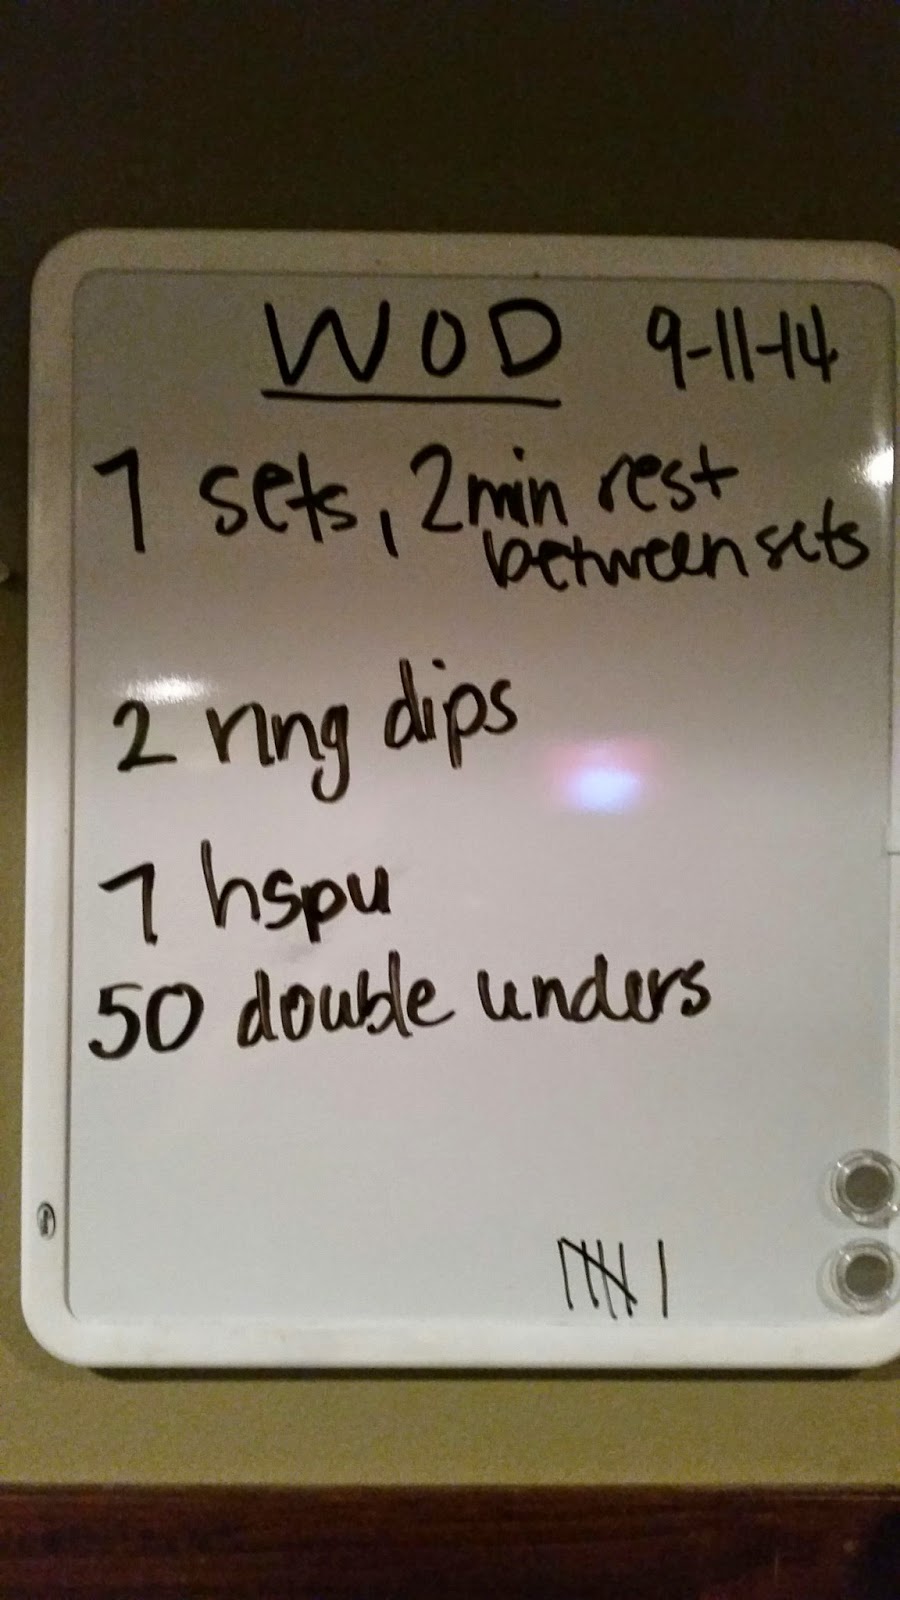 WOD 9-11-14
7 sets, 2min rest
between sets
2 ring dips
7 hspu
50 double unders